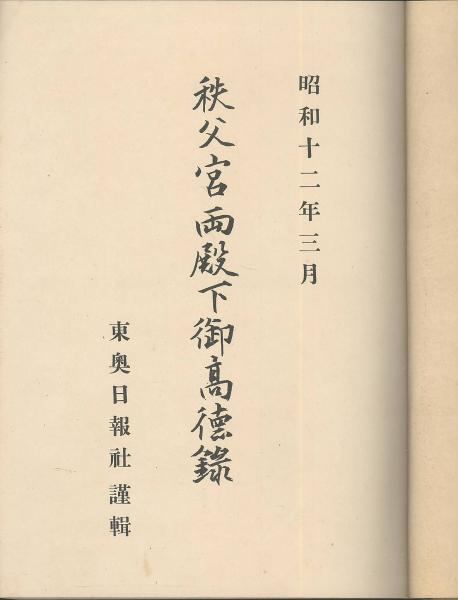 昭和十二年三月
秩父宮両殿下御高德錄
東奥日報社謹輯